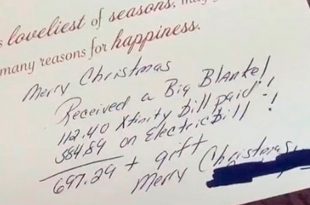 s loveliest of seasons, may
many reasons for happiness.
Merry Christmas
Received a Big Blanket!
112.40 Xfinity bill paid!!
584.89 on Electric Bill!!
697.29 + gift
Merry Christmas